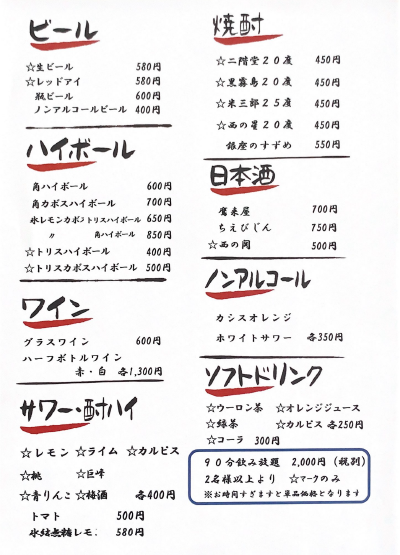 ビール
☆生ビール 580円
☆レッドアイ 580円
瓶ビール 600円
ノンアルコールビール 400円
ハイボール
角ハイボール 600円
角カボスハイボール 700円
氷レモンカボストリスハイボール 650円
〃 角ハイボール 850円
☆トリスハイボール 400円
☆トリスカボスハイボール 500円
ワイン
グラスワイン 600円
ハーフボトルワイン
赤・白 各1,300円
サワー・酎ハイ
☆レモン ☆ライム ☆カルピス
☆桃 ☆巨峰
☆青りんご ☆梅酒 各400円
トマト 500円
氷結無糖レモン 580円
焼酎
☆二階堂20度 450円
☆黒霧島20度 450円
☆米三郎25度 450円
☆西の星20度 450円
銀座のすずめ 550円
日本酒
鷹来屋 700円
ちえびじん 750円
☆西の関 500円
ノンアルコール
カシスオレンジ
ホワイトサワー 各350円
ソフトドリンク
☆ウーロン茶 ☆オレンジジュース
☆緑茶 ☆カルピス 各250円
☆コーラ 300円
90分飲み放題 2,000円（税別）
2名様以上より ☆マークのみ
※お時間すぎますと単品価格となります